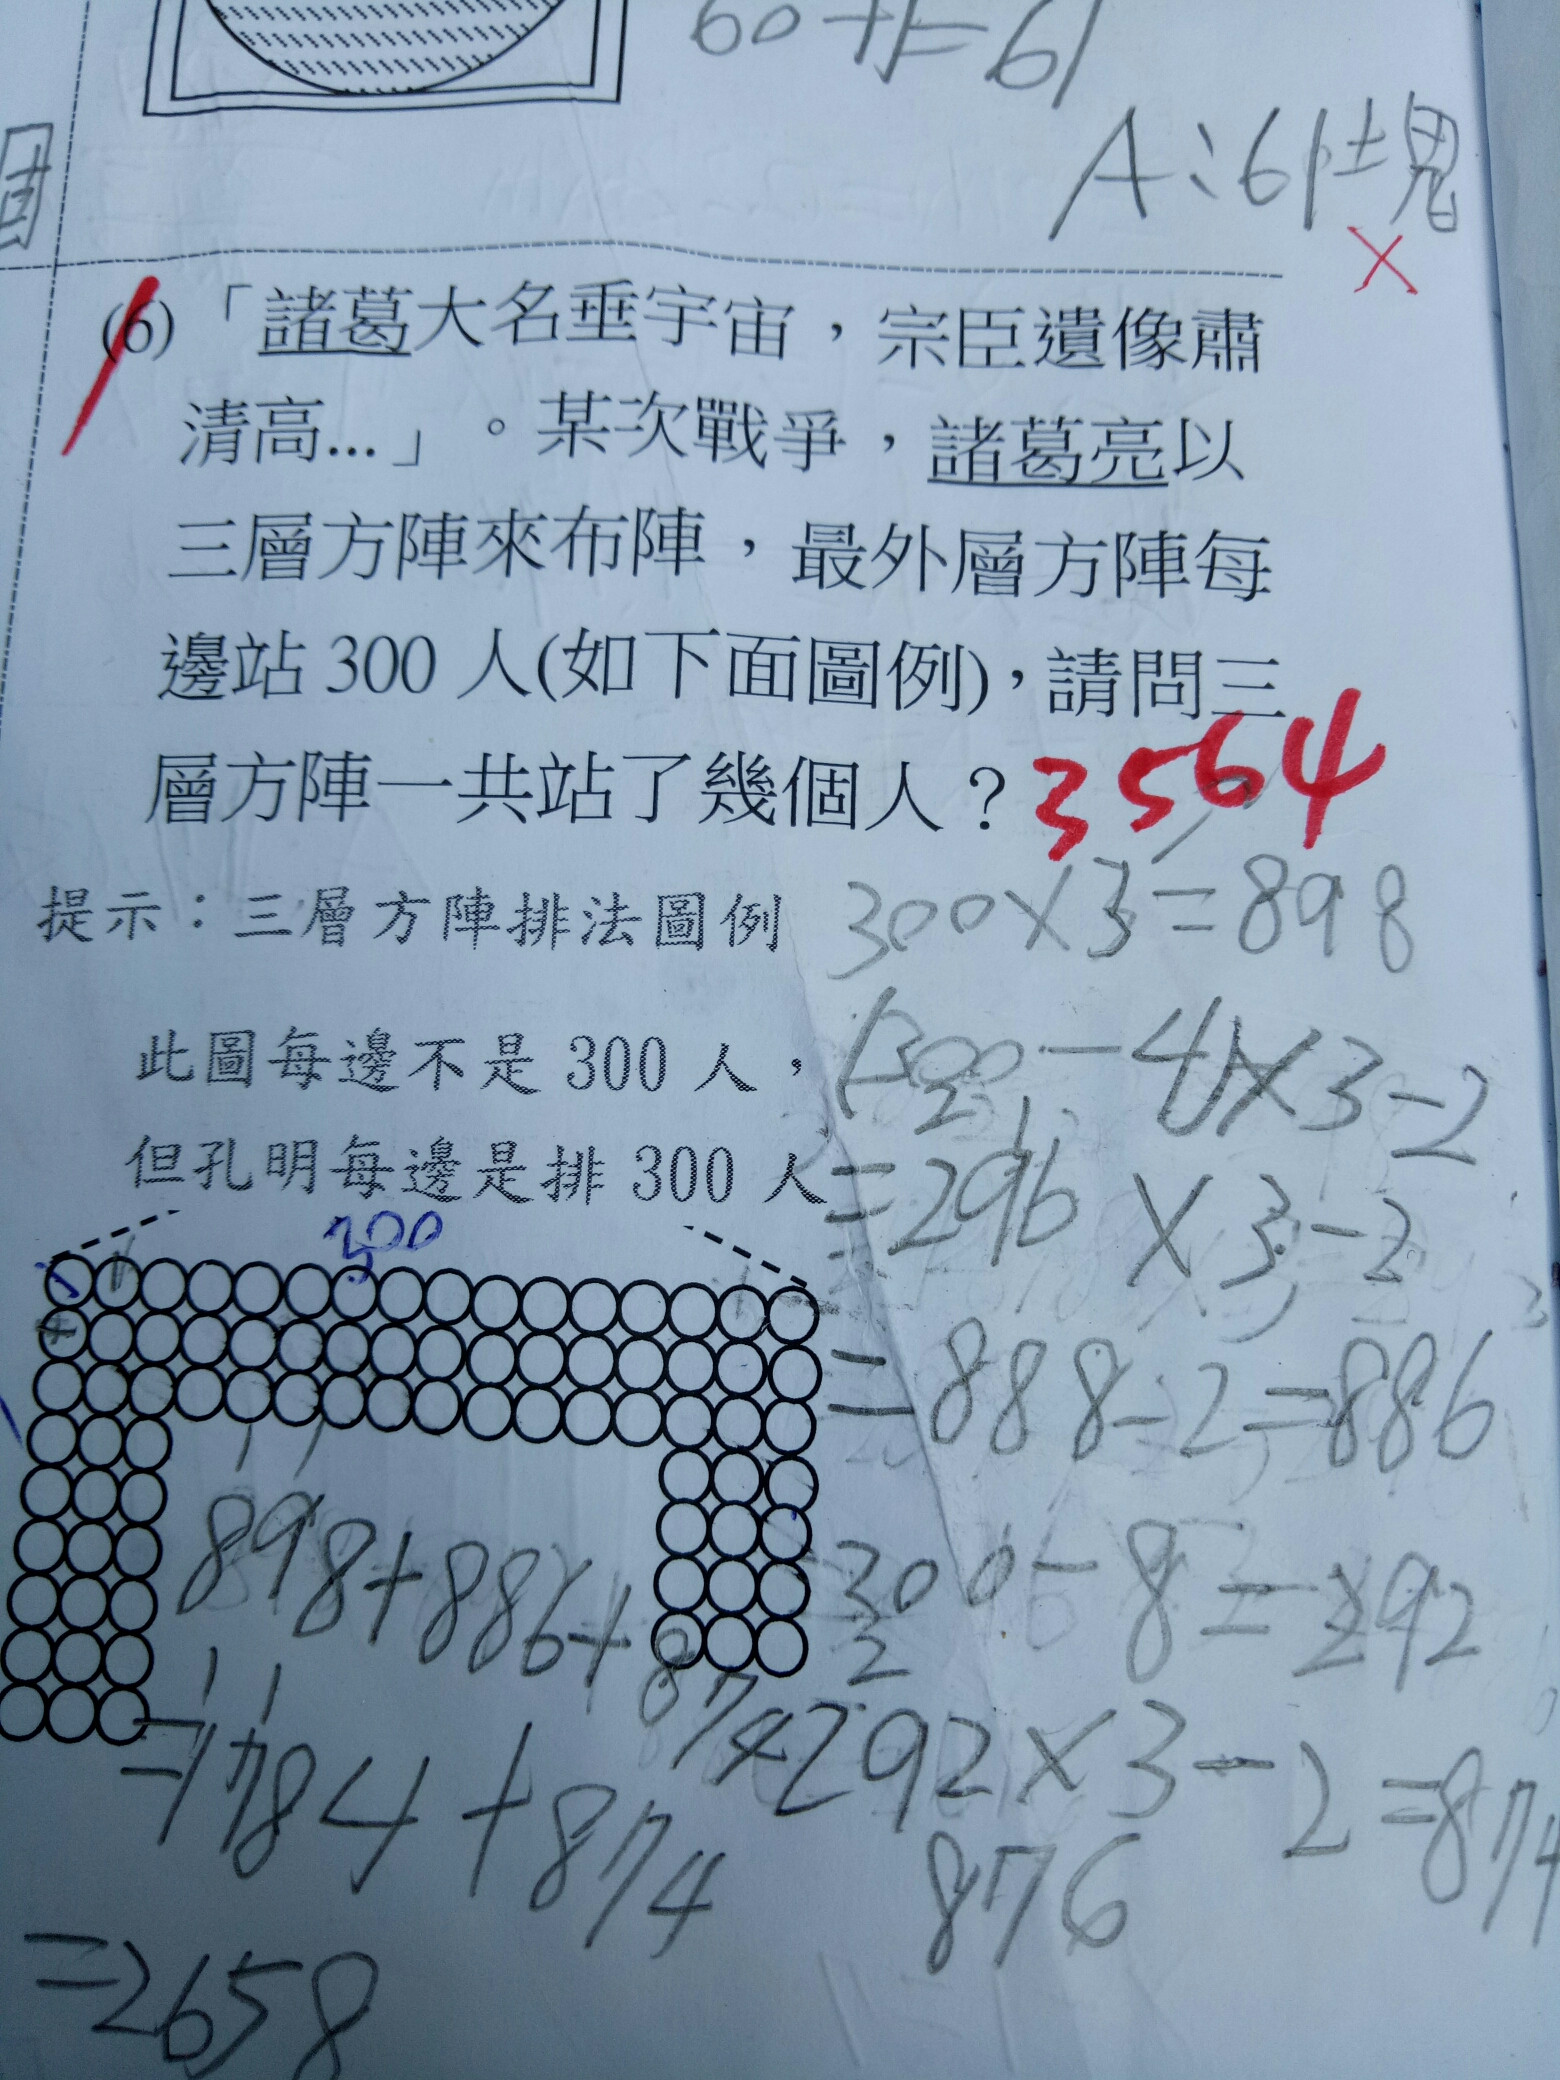 60+1=61
A:61塊
(6)「諸葛大名垂宇宙，宗臣遺像肅
清高...」。某次戰爭，諸葛亮以
三層方陣來布陣，最外層方陣每
邊站300人(如下面圖例)，請問三
層方陣一共站了幾個人？3564
提示：三層方陣排法圖例
此圖每邊不是300人，
但孔明每邊是排300人
300
300×3-2=898
(300-4)×3-2
=296×3-2
=888-2=886
300-8=292
292×3-2=874
876
898+886+874
=1784+874
=2658